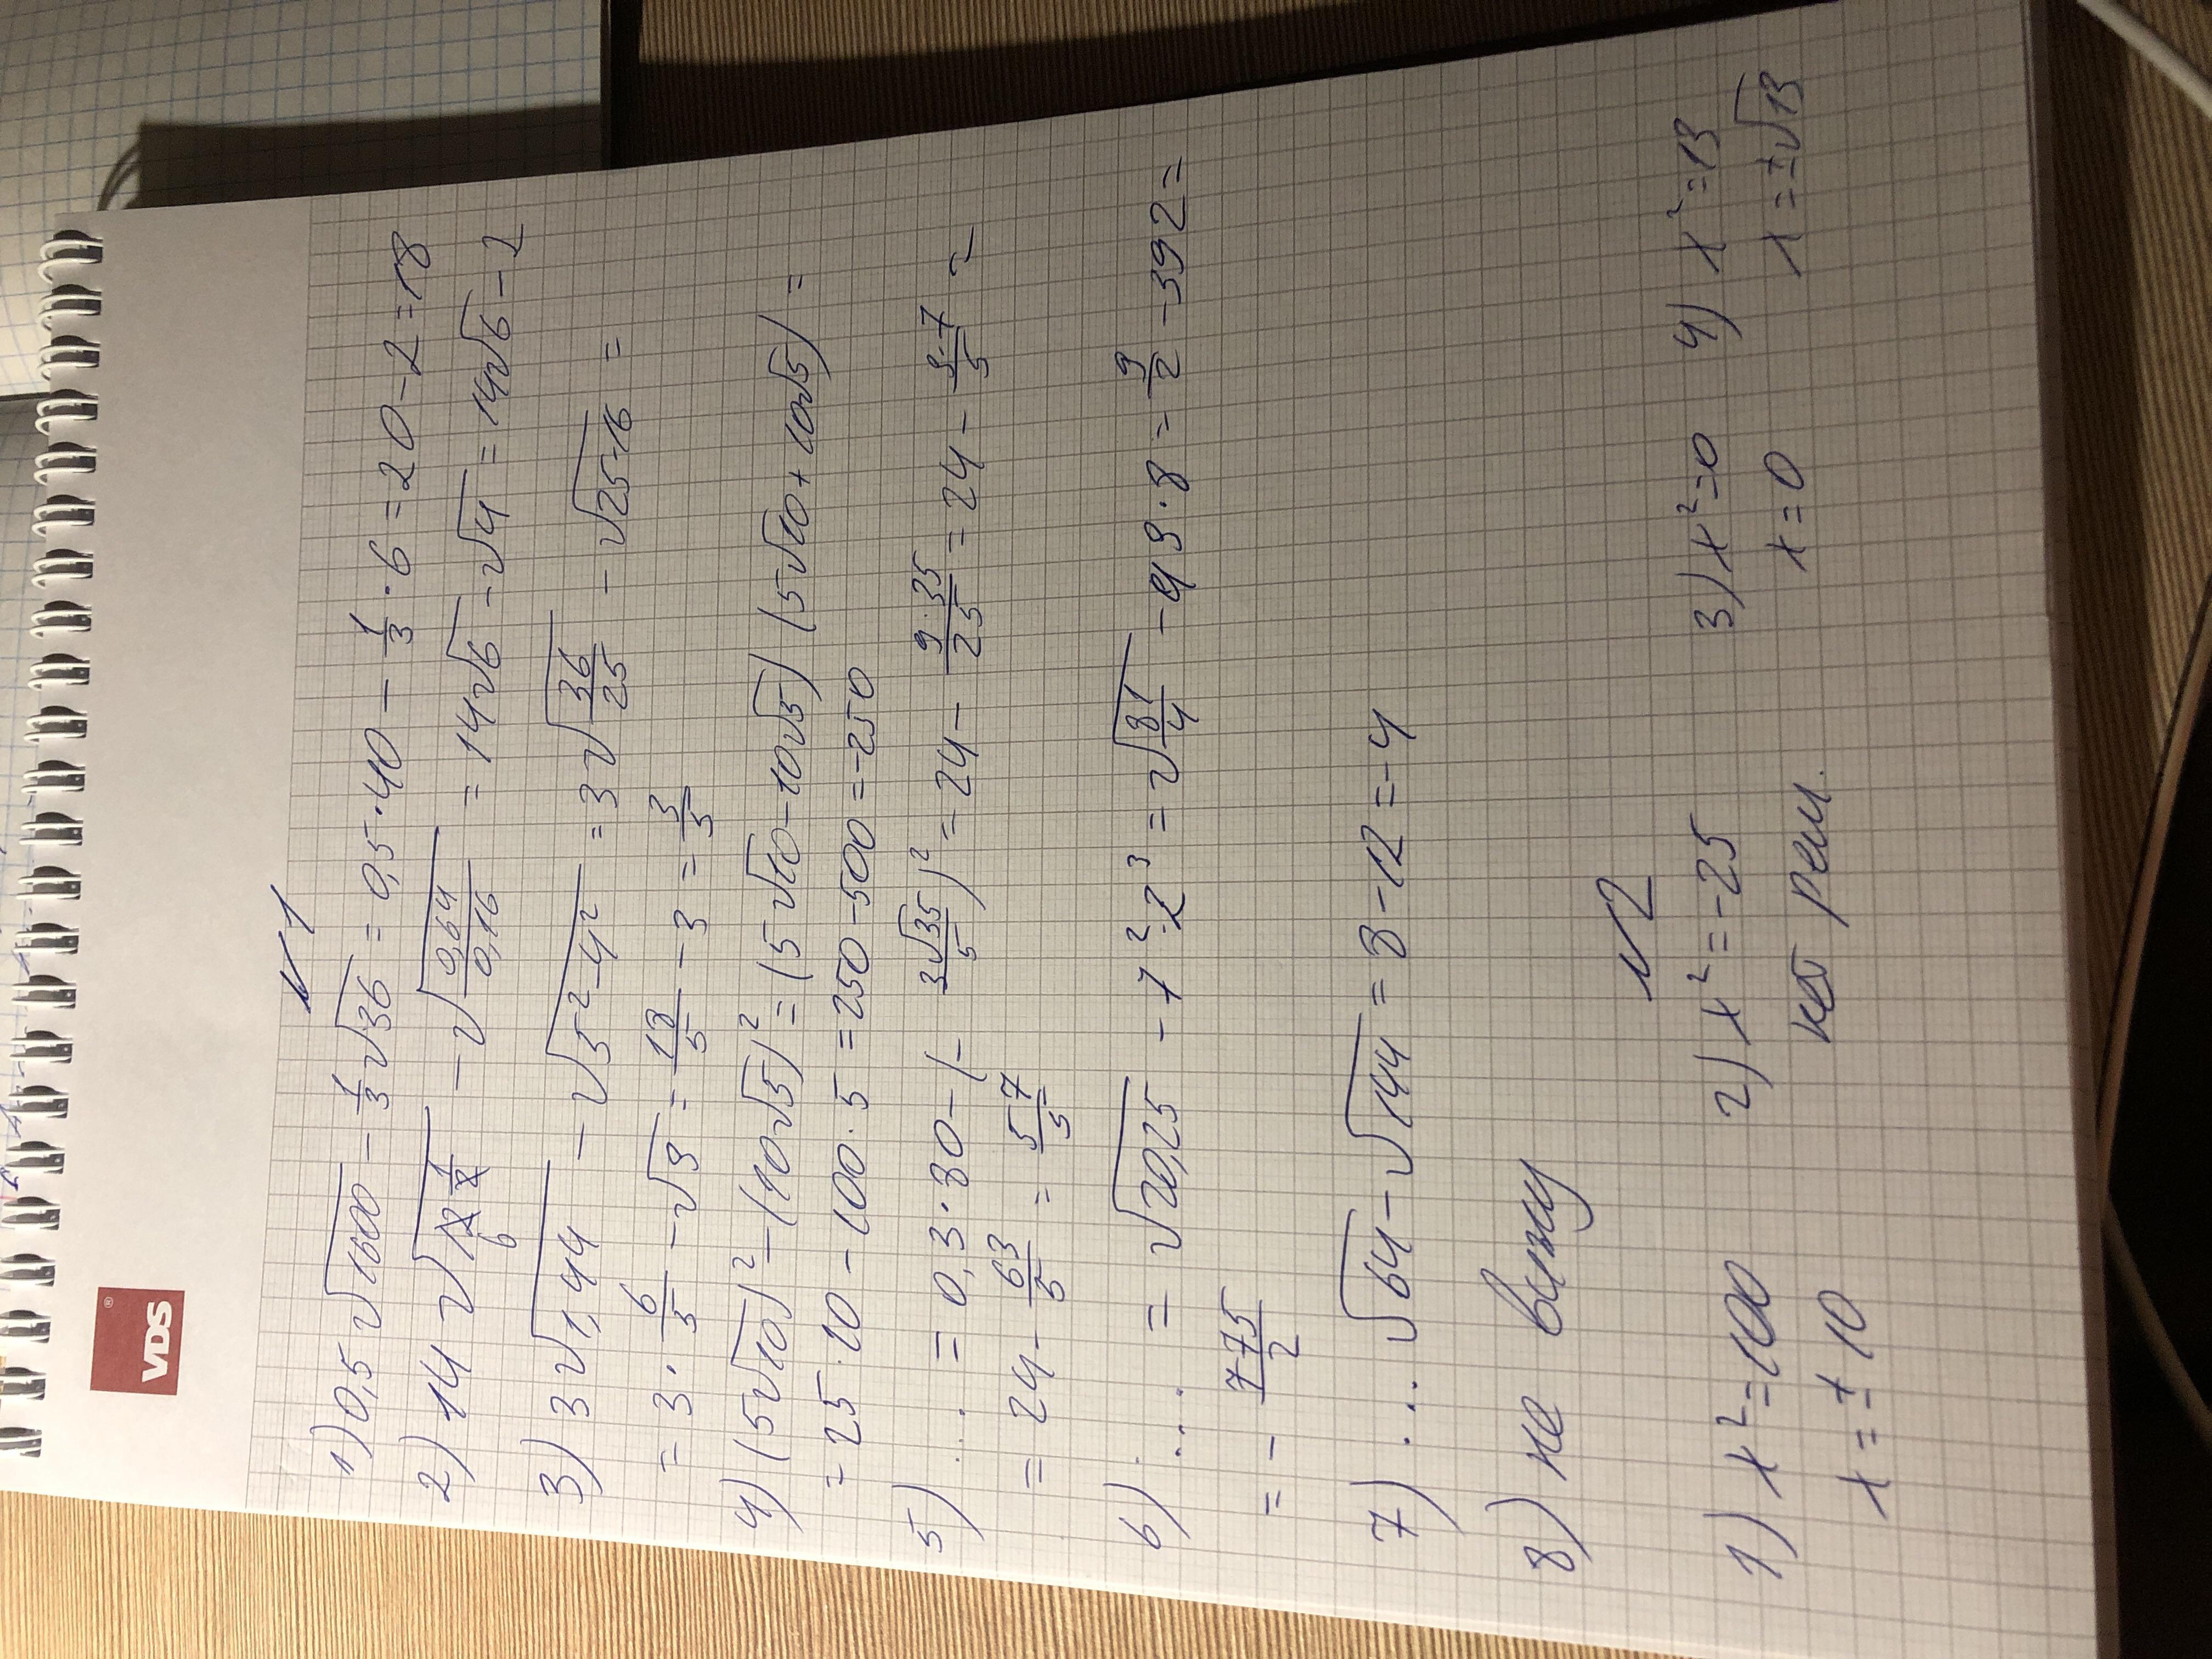 VDS®
N1
1) 0,5√1600 - 1/3√36 = 0,5·40 - 1/3·6 = 20-2=18
2) 14√(12 1/2) - √(0,64/0,16) = 14√6 - √4 = 14√6 - 2
6
3) 3√1,44 - √(5²-4²) = 3√(36/25) - √(25-16) =
= 3·6/5 - √9 = 18/5 - 3 = 3/5
4) (5√10)² - (10√5)² = (5√10-10√5)(5√10+10√5) =
= 25·10 - 100·5 = 250-500 = -250
5) ... = 0,3·80 - (- 3√35/5)² = 24 - 9·35/25 = 24 - 9·7/5 =
= 24 - 63/5 = 57/5
6) ... = √20,25 - 7²·2³ = √(81/4) - 49·8 = 9/2 - 392 =
= - 775/2
7) ... √64 - √144 = 8-12 = -4
8) не вижу
N2
1) x²=100 2) x²=-25 3) x²=0 4) x²=13
x=±10 нет реш. x=0 x=±√13